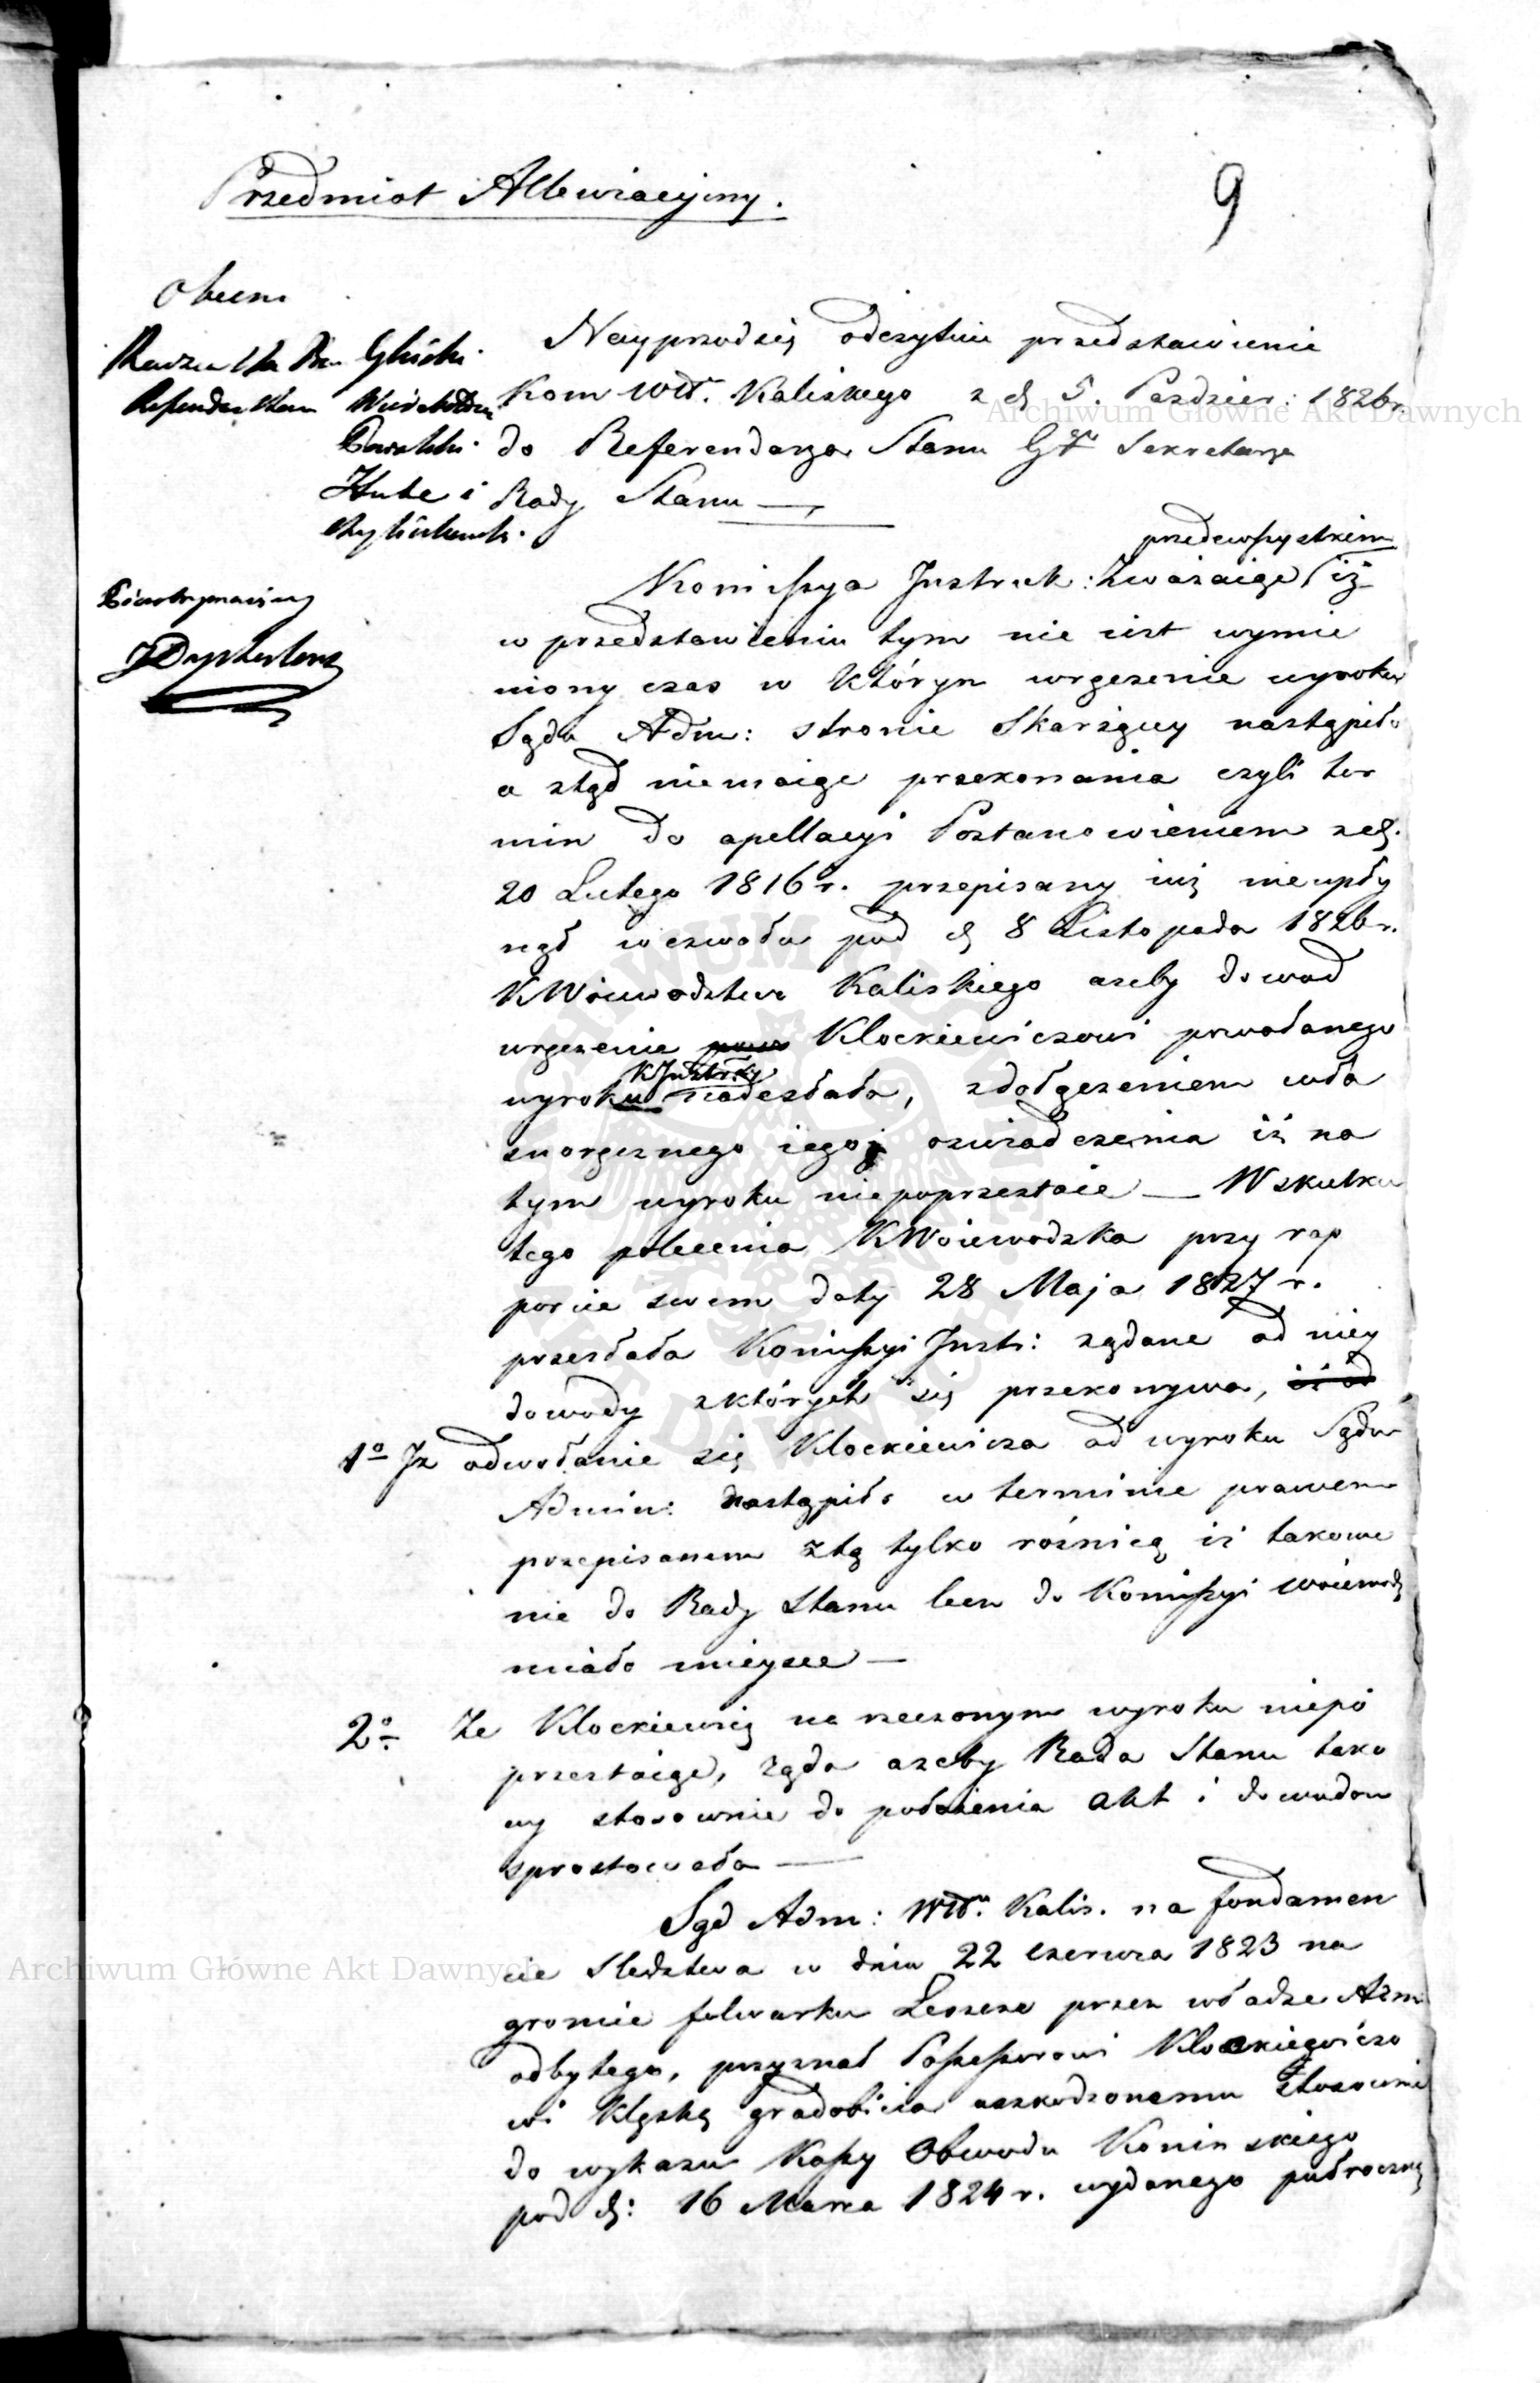 9
Przedmiot Allewiacyjny.
Obecni
Radzca Stanu Gliński.
Referendarze Stanu
Hube i
Pióro trzymaiący
Nayprzod się odczytuie przedstawienie
Kom Wdt. Kaliskego z d. 5. Paździer: 1826 r.
do Referendarza Stanu Gł Sekretarza
Rady Stanu —
przedewszystkiem
Kommissya Instruk: Zważaiąc iż
w przedstawieniu tym nie iest wymie
niony czas w którym wręczenie wyroku
Sądu Adm: stronie Skarżącey nastąpiło
a ztąd niemaiąc przekonania czyli ter
min do apellacyi Postanowieniem z d.
20 Lutego 1816 r. przepisany iuż nieupły
nął wezwała pod d. 8 Listopada 1826 r.
KWoiewodztwa Kaliskiego ażeby dowod
wręczenia Klockiewiczowi powołanego
K Instrky
wyroku nadesłała, z dołączeniem wła
snoręcznego iego oświadczenia iż na
tym wyroku niepoprzestaie — W skutku
tego polecenia KWoiewodzka przy rap
porcie swem daty 28 Maja 1827 r.
przesłała Kommissyi Instr: żądane od niey
dowody z których się przekonywa, iż od
1o Iż odwołanie się Klockiewicza od wyroku Sądu
Admin: nastąpiło w terminie prawem
przepisanem z tą tylko rożnicą iż takowe
nie do Rady Stanu lecz do Kommissyi Woiewodz
miało mieysce —
2o. Że Klockiewicz na rzeczonym wyroku niepo
przestaiąc, żąda ażeby Rada Stanu tako
wy stosownie do położenia akt i dowodow
sprostowała —
Sąd Adm: Wdt. Kalis. na fondamen
cie sledztwa w dniu 22 czerwca 1823 na
groncie folwarku Leszcze przez władze Adm
odbytego, przyznał Possessorowi Klockiewiczo
wi klęską gradobicia uszkodzonemu stosownie
do wykazu Kassy Obwodu Koninskiego
pod d: 16 Marca 1824 r. wydanego pułroczną
Archiwum Główne Akt Dawnych
Archiwum Główne Akt Dawnych